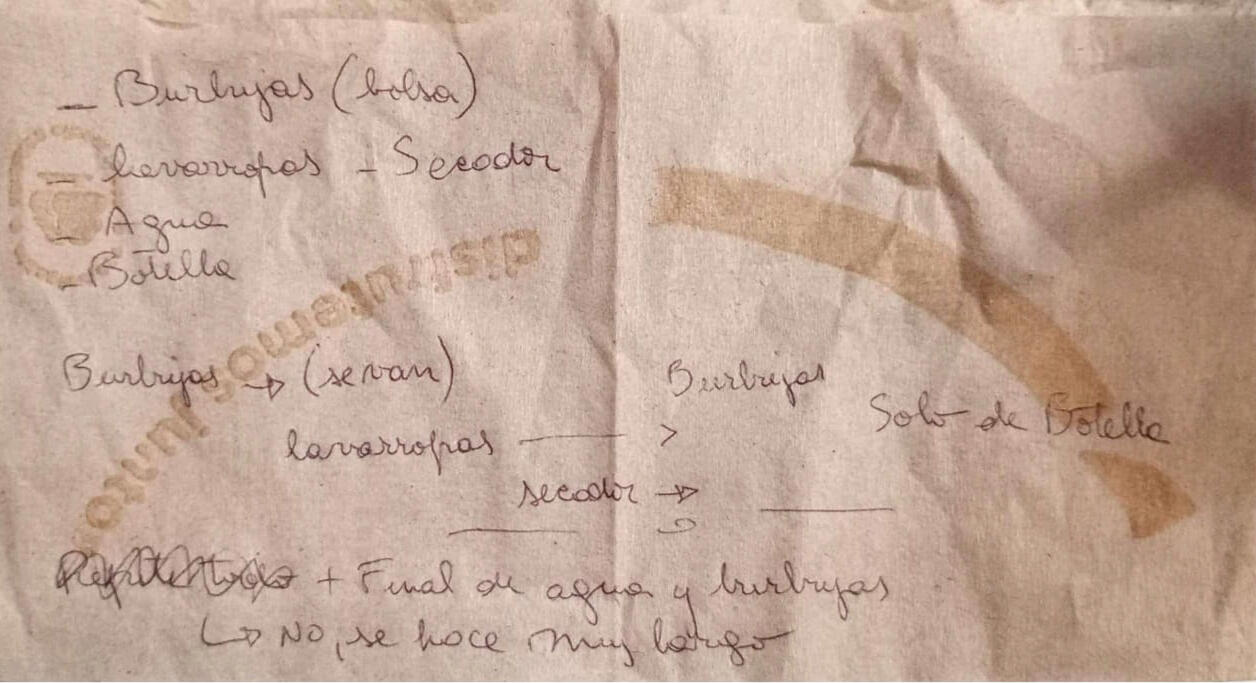 - Burbujas (bolsa)
- lavarropas - Secador
- Agua
- Botella
disfrutemos junto
Burbujas → (se van) Burbujas
Solo de Botella
lavarropas —— >
secador →
+ Final de agua y burbujas
↳ NO, se hace muy largo